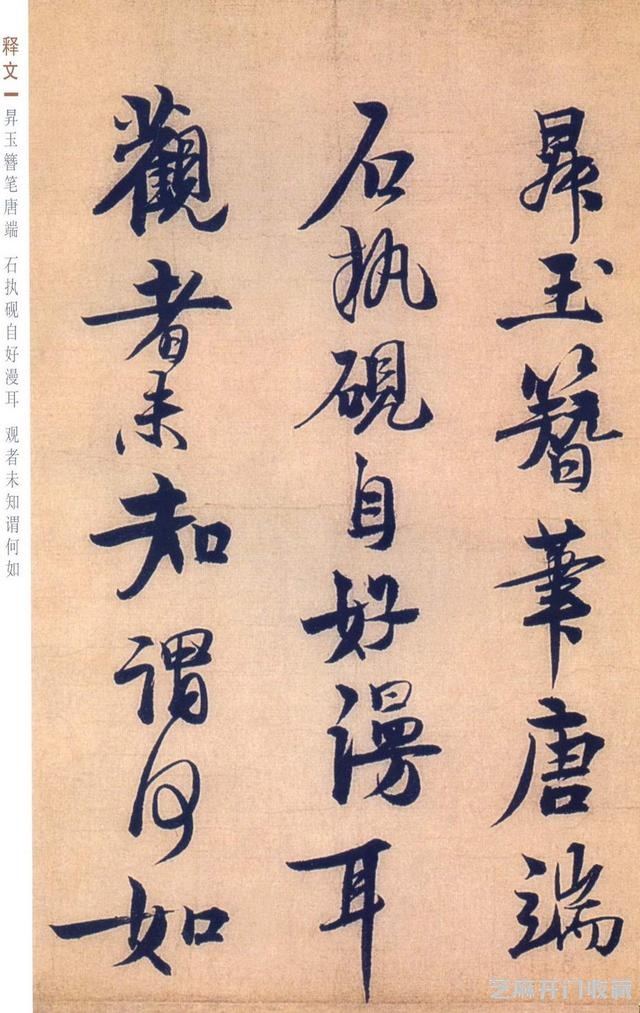 昇玉簪筆唐端
石执硯自好漫耳
觀者未知謂何如
释文
昇玉簪笔唐端 石执砚自好漫耳 观者未知谓何如
芝麻开门收藏